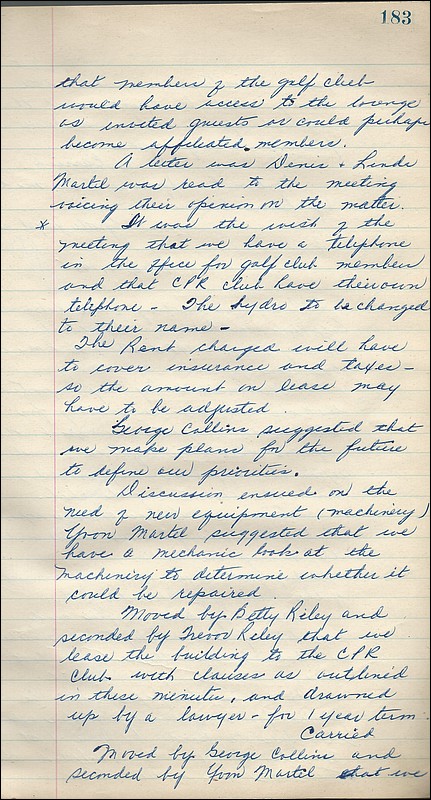 183
that members of the golf club
would have access to the lounge
as invited guests or could perhaps
become affiliated members.
A letter was Denis & Linda
Martel was read to the meeting
voicing their openion on the matter.
* It was the wish of the
meeting that we have a telephone
in the office for golf club members
and that CPR Club have their own
telephone - The hydro to be changed
to their name -
The Rent charged will have
to cover insurance and taxes -
so the amount on lease may
have to be adjusted.
George Collins suggested that
we make plans for the future
to define our priorities.
Discussion ensued on the
need of new equipment (machinery)
Yvon Martel suggested that we
have a mechanic look at the
machinery to determine whether it
could be repaired.
Moved by Betty Riley and
seconded by Trevor Riley that we
lease the building to the CPR
Club with clauses as outlined
in these minutes, and drawned
up by a lawyer - for 1 year term.
Carried
Moved by George Collins and
seconded by Yvon Martel that we